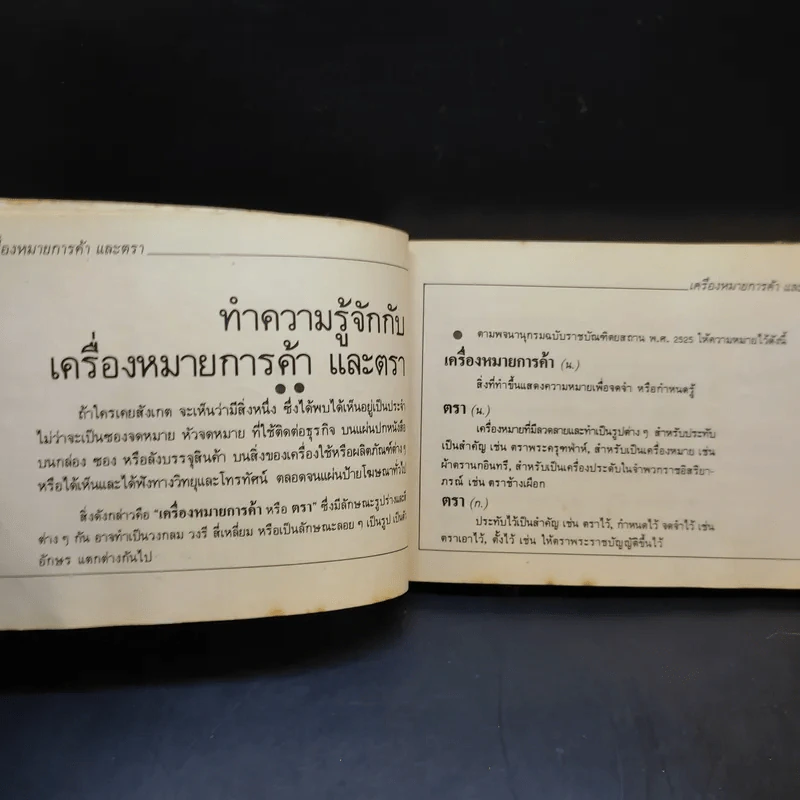 เครื่องหมายการค้า และตรา
ทำความรู้จักกับ
เครื่องหมายการค้า และตรา
ถ้าใครเคยสังเกต จะเห็นว่ามีสิ่งหนึ่ง ซึ่งได้พบได้เห็นอยู่เป็นประจำ
ไม่ว่าจะเป็นซองจดหมาย หัวจดหมาย ที่ใช้ติดต่อธุรกิจ บนแผ่นปกหนังสือ
บนกล่อง ซอง หรือลังบรรจุสินค้า บนสิ่งของเครื่องใช้หรือผลิตภัณฑ์ต่าง ๆ
หรือได้เห็นและได้ฟังทางวิทยุและโทรทัศน์ ตลอดจนแผ่นป้ายโฆษณาทั่วไป
สิ่งดังกล่าวคือ "เครื่องหมายการค้า หรือ ตรา" ซึ่งมีลักษณะรูปร่างและสี
ต่าง ๆ กัน อาจทำเป็นวงกลม วงรี สี่เหลี่ยม หรือเป็นลักษณะลอย ๆ เป็นรูป เป็นตัว
อักษร แตกต่างกันไป
เครื่องหมายการค้า และ
● ตามพจนานุกรมฉบับราชบัณฑิตยสถาน พ.ศ. 2525 ให้ความหมายไว้ดังนี้
เครื่องหมายการค้า (น.)
สิ่งที่ทำขึ้นแสดงความหมายเพื่อจดจำ หรือกำหนดรู้
ตรา (น.)
เครื่องหมายที่มีลวดลายและทำเป็นรูปต่าง ๆ สำหรับประทับ
เป็นสำคัญ เช่น ตราพระครุฑพ่าห์, สำหรับเป็นเครื่องหมาย เช่น
ผ้าตรานกอินทรี, สำหรับเป็นเครื่องประดับในจำพวกราชอิสริยา-
ภรณ์ เช่น ตราช้างเผือก
ตรา (ก.)
ประทับไว้เป็นสำคัญ เช่น ตราไว้, กำหนดไว้ จดจำไว้ เช่น
ตราเอาไว้, ตั้งไว้ เช่น ให้ตราพระราชบัญญัติขึ้นไว้